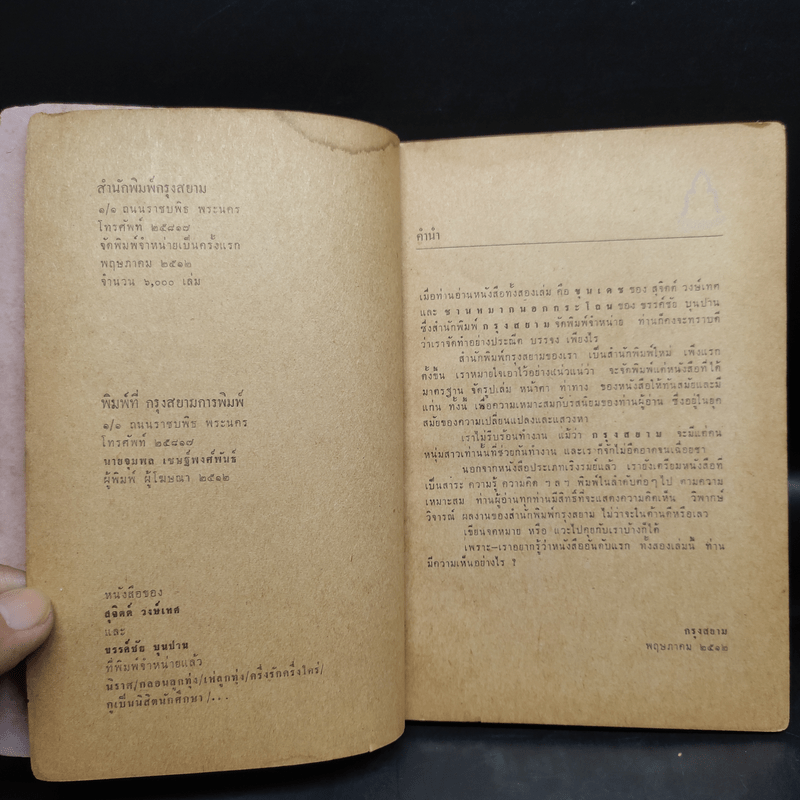 สำนักพิมพ์กรุงสยาม
๑/๑ ถนนราชบพิธ พระนคร
โทรศัพท์ ๒๕๘๑๘
จัดพิมพ์จำหน่ายเป็นครั้งแรก
พฤษภาคม ๒๕๑๒
จำนวน ๖,๐๐๐ เล่ม
พิมพ์ที่ กรุงสยามการพิมพ์
๑/๑ ถนนราชบพิธ พระนคร
โทรศัพท์ ๒๕๘๑๘
นายจุมพล เชษฐ์พงศ์พันธ์
ผู้พิมพ์ ผู้โฆษณา ๒๕๑๒
หนังสือของ
สุจิตต์ วงษ์เทศ
และ
ขรรค์ชัย บุนปาน
ที่พิมพ์จำหน่ายแล้ว
นิราศ/กลอนลูกทุ่ง/เห่ลูกทุ่ง/ครึ่งรักครึ่งใคร่/
กูเป็นนิสิตนักศึกษา/...
คำนำ
เมื่อท่านอ่านหนังสือทั้งสองเล่ม คือ ขุนเดช ของ สุจิตต์ วงษ์เทศ
และ ชานหมากนอกกระโถน ของ ขรรค์ชัย บุนปาน
ซึ่งสำนักพิมพ์ กรุงสยาม จัดพิมพ์จำหน่าย ท่านก็คงจะทราบดี
ว่าเราจัดทำอย่างประณีต บรรจง เพียงไร
สำนักพิมพ์กรุงสยามของเรา เป็นสำนักพิมพ์ใหม่ เพิ่งแรก
ตั้งขึ้น เราหมายใจเอาไว้อย่างแน่วแน่ว่า จะจัดพิมพ์แต่หนังสือที่ได้
มาตรฐาน จัดรูปเล่ม หน้าตา ท่าทาง ของหนังสือให้ทันสมัยและมี
แก่น ทั้งนี้ เพื่อความเหมาะสมกับรสนิยมของท่านผู้อ่าน ซึ่งอยู่ในยุค
สมัยของความเปลี่ยนแปลงและแสวงหา
เราไม่รีบร้อนทำงาน แม้ว่า กรุงสยาม จะมีแต่คน
หนุ่มสาวเท่านั้นที่ช่วยกันทำงาน และเราก็จักไม่อืดอาดจนเฉื่อยชา
นอกจากหนังสือประเภทเริงรมย์แล้ว เรายังเตรียมหนังสือที่
เป็นสาระ ความรู้ ความคิด ฯลฯ พิมพ์ในลำดับต่อๆ ไป ตามความ
เหมาะสม ท่านผู้อ่านทุกท่านมีสิทธิ์ที่จะแสดงความคิดเห็น วิพากษ์
วิจารณ์ ผลงานของสำนักพิมพ์กรุงสยาม ไม่ว่าจะในด้านดีหรือเลว
เขียนจดหมาย หรือ แวะไปคุยกับเราบ้างก็ได้
เพราะ—เราอยากรู้ว่าหนังสืออันดับแรก ทั้งสองเล่มนี้ ท่าน
มีความเห็นอย่างไร ?
กรุงสยาม
พฤษภาคม ๒๕๑๒